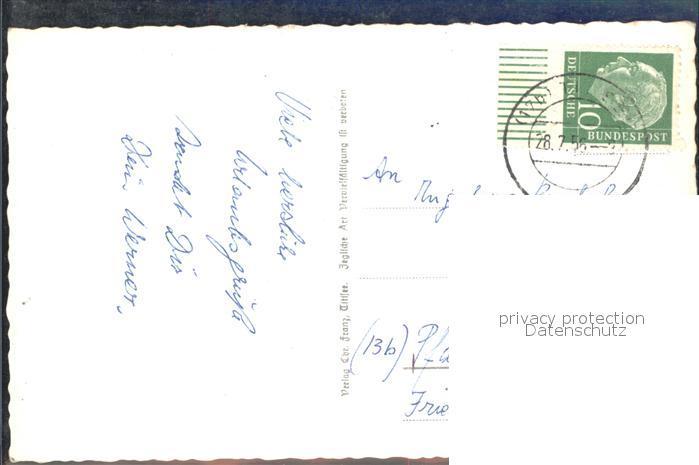 Viele herzliche
Urlaubsgrüße
sendet Dir
Dein Werner.
Verlag Chr. Franz, Titisee. Jegliche Art Vervielfältigung ist verboten
DEUTSCHE
10
BUNDESPOST
28.7.56
An
(13b)
privacy protection
Datenschutz